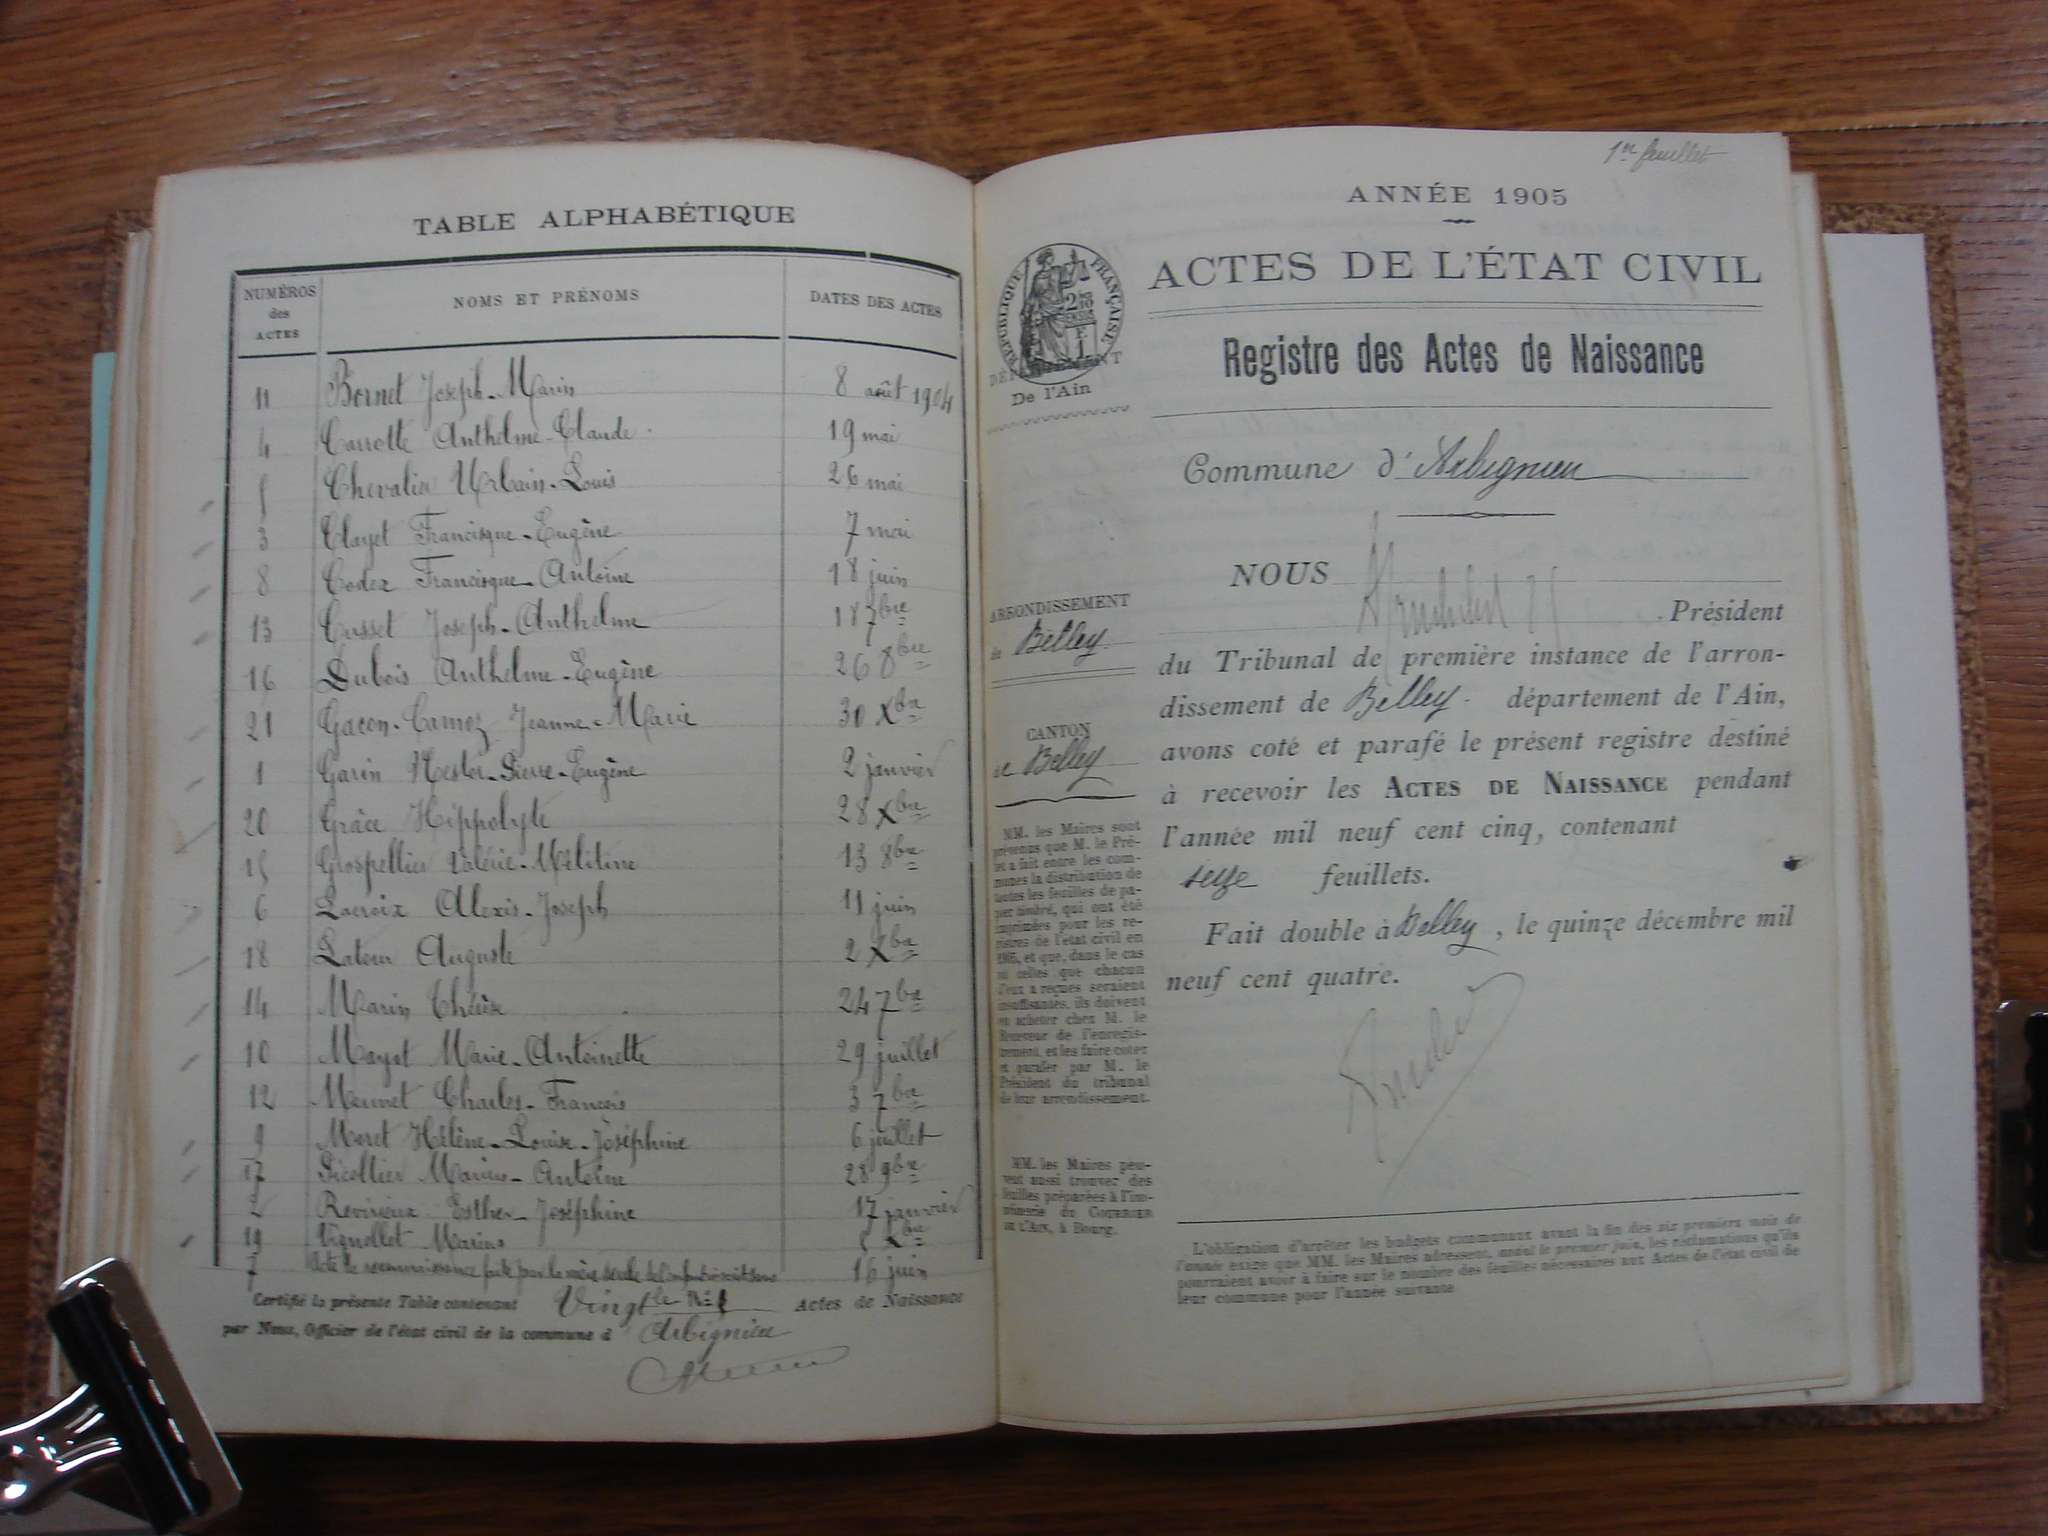 TABLE ALPHABÉTIQUE
NUMÉROS des ACTES NOMS ET PRÉNOMS DATES DES ACTES
11 Bornet Joseph-Marin 8 août 1904
4 Carrotte Anthelme-Claude 19 mai
5 Chevalier Urbain-Louis 26 mai
3 Clayet Francisque-Eugène 7 mai
8 Codex Francisque-Antoine 18 juin
13 Cusset Joseph-Anthelme 18 7bre
16 Dubois Anthelme-Eugène 26 8bre
21 Gacon-Camoz Jeanne-Marie 30 Xbre
1 Garin Nestor-Pierre-Eugène 2 janvier
20 Grâce Hippolyte 28 Xbre
15 Grospellier Valérie-Mélitine 13 8bre
6 Lacroix Alexis-Joseph 11 juin
18 Lateur Auguste 2 Xbre
14 Marin Thérèse 24 7bre
10 Mayot Marie-Antoinette 29 juillet
12 Meunet Charles-François 3 7bre
9 Moret Hélène-Louise-Joséphine 6 juillet
17 Picollier Marius-Antoine 28 9bre
2 Revirieux Esther-Joséphine 17 janvier
19 Vignollet Marius 5 Xbre
7 Acte de reconnaissance faite par la mère 16 juin
Certifié la présente Table contenant Vingt Actes de Naissance
par Nous, Officier de l'état civil de la commune d'Arbignieu
1er feuillet
ANNÉE 1905
RÉPUBLIQUE FRANÇAISE
DÉPARTEMENT
De l'Ain
ACTES DE L'ÉTAT CIVIL
Registre des Actes de Naissance
Commune d'Arbignieu
ARRONDISSEMENT
de Belley
CANTON
de Belley
MM. les Maires sont
prévenus que M. le Pré-
fet a fait entre les com-
munes la distribution de
toutes les feuilles de pa-
pier timbré, qui ont été
imprimées pour les re-
gistres de l'état civil en
1905, et que, dans le cas
où celles que chacun
d'eux a reçues seraient
insuffisantes, ils doivent
en acheter chez M. le
Receveur de l'enregis-
trement, et les faire coter
et parafer par M. le
Président du tribunal
de leur arrondissement.
MM. les Maires peu-
vent aussi trouver des
feuilles préparées à l'im-
primerie du COURRIER
DE L'AIN, à Bourg.
NOUS
Président
du Tribunal de première instance de l'arron-
dissement de Belley département de l'Ain,
avons coté et parafé le présent registre destiné
à recevoir les ACTES DE NAISSANCE pendant
l'année mil neuf cent cinq, contenant
seize feuillets.
Fait double à Belley, le quinze décembre mil
neuf cent quatre.
L'obligation d'arrêter les budgets communaux avant la fin des six premiers mois de
l'année exige que MM. les Maires adressent, avant le premier juin, les réclamations qu'ils
pourraient avoir à faire sur le nombre des feuilles nécessaires aux Actes de l'état civil de
leur commune pour l'année suivante